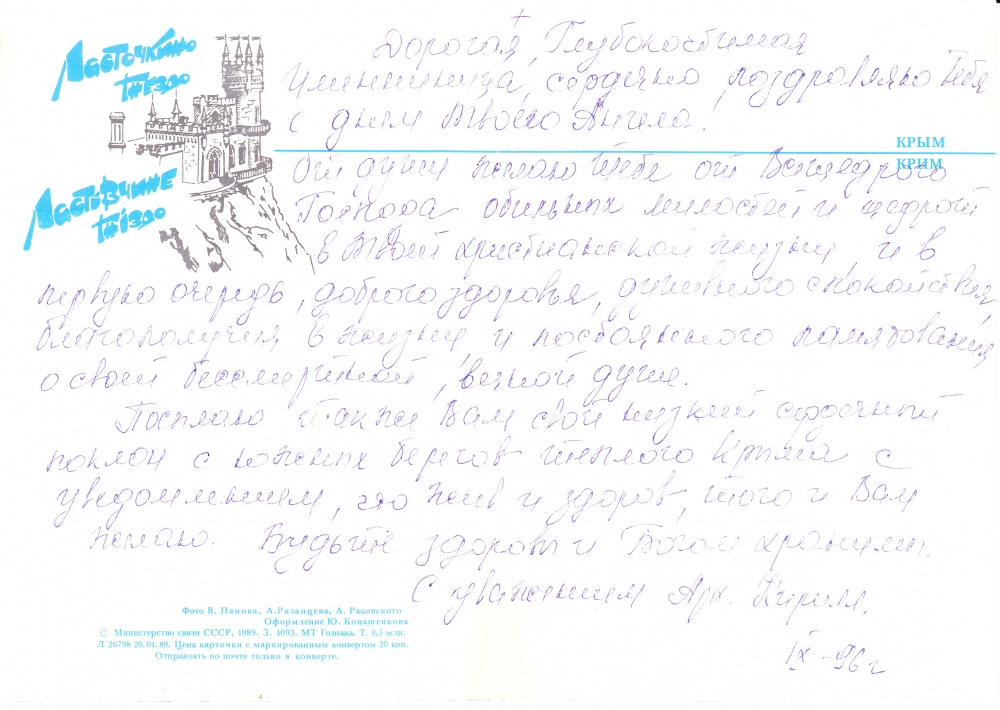 Ласточкино
гнездо
Ластівчине
гніздо
КРЫМ
КРИМ
+
Дорогая, Глубокосбимая
Именинница, сердечно поздравляю Тебя
с днем Твоего Ангела!
От души желаю Тебе от Всещедрого
Господа обильных милостей и щедрот
в Твоей христианской жизни, и в
первую очередь, доброго здоровья, душевного спокойствия,
благополучия в жизни, и постоянного памятования
о своей бессмертной, вечной душе.
Посылаю также Вам свой низкий сердечный
поклон с южных берегов теплого Крыма с
уведомлением, что жив и здоров, того и Вам
желаю. Будьте здоровы и Богом хранимы.
С уважением Арх. Кирилл.
IX-96 г
Фото В. Панова, А. Рязанцева, А. Расовского
Оформление Ю. Конашенкова
© Министерство связи СССР, 1989. З. 4093. МТ Гознака. Т. 0,5 млн.
Л 26798 20.04.89. Цена карточки с маркированным конвертом 20 коп.
Отправлять по почте только в конверте.